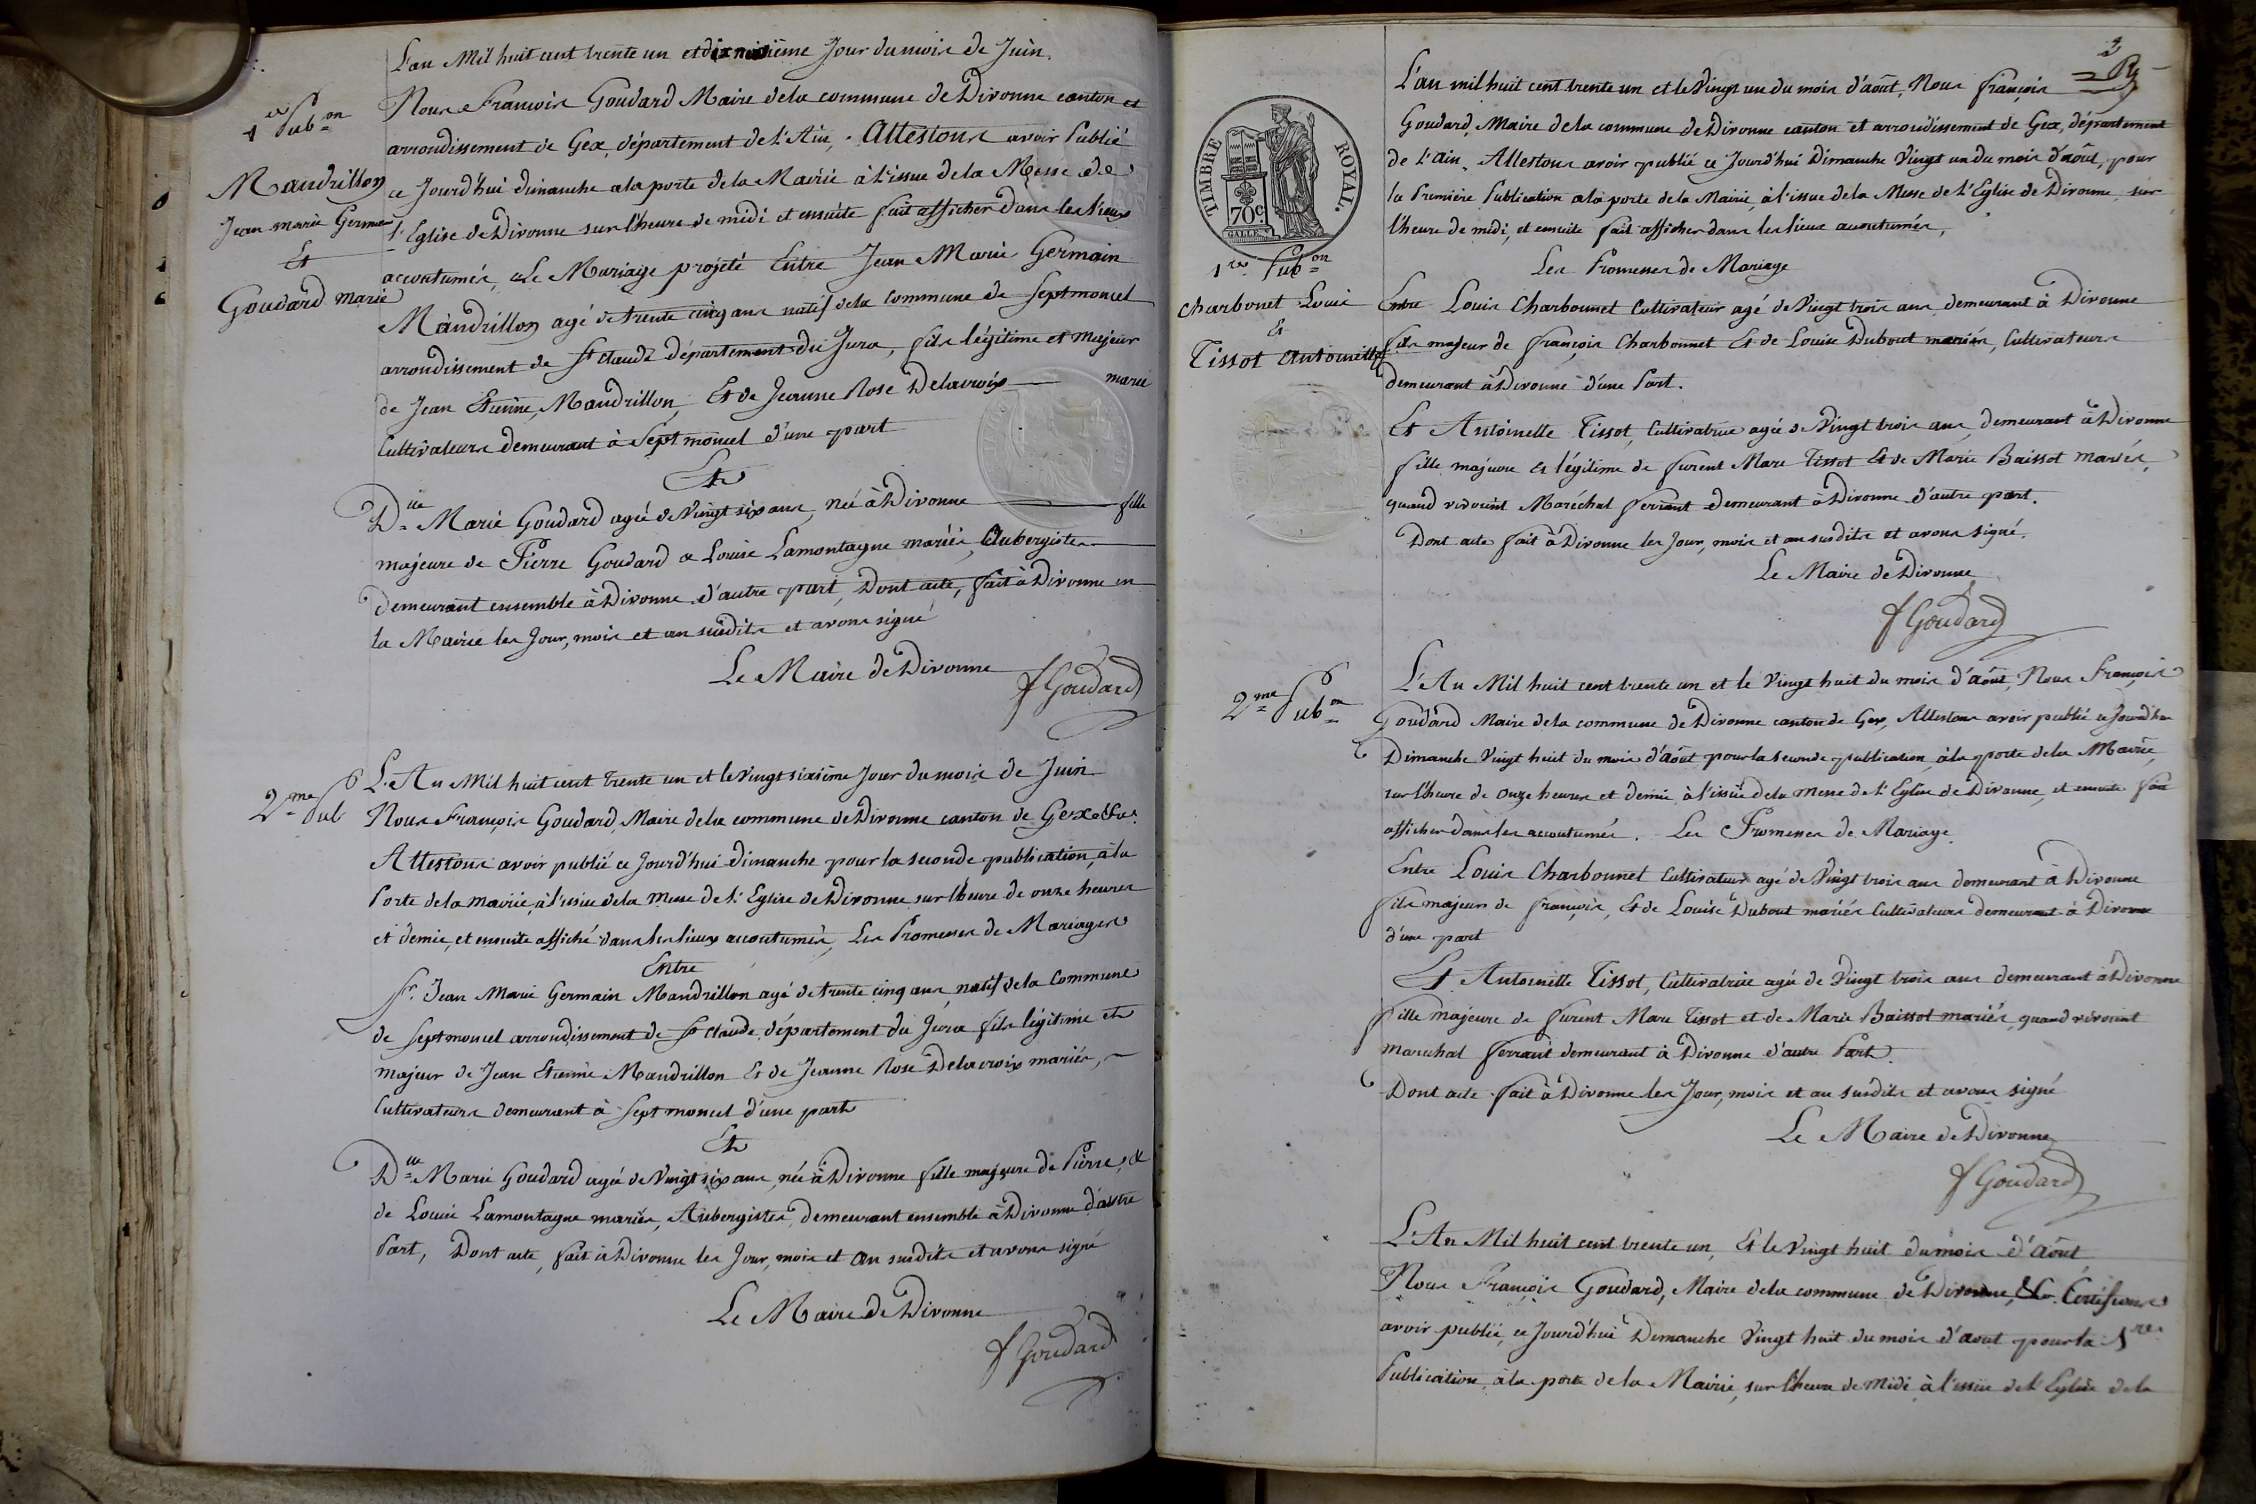 L'an Mil huit cent trente un et dixneuvième Jour du mois de Juin.
1re Pubon
Nous François Goudard Maire de la commune de Divonne canton et
arrondissement de Gex, département de l'Ain, Attestons avoir Publié
Mandrillon
Jean marie Germain
Et
Goudard marie
ce Jourd'hui dimanche a la porte de la Mairie à l'issue de la Messe de
l'Eglise de Divonne sur l'heure de midi et ensuite fait afficher dans les lieux
accoutumés, Le Mariage projeté Entre Jean Marie Germain
Mandrillon agé de trente cinq ans natif de la commune de Septmoncel
arrondissement de St Claude département du Jura, fils légitime et Majeur
de Jean Etienne Mandrillon, Et de Jeanne Rose Delacroix marié
Cultivateurs demeurant à Septmoncel d'une part
Et
Dlle Marie Goudard agée de Vingt six ans, née à Divonne fille
majeure de Pierre Goudard & Louise Lamontagne mariés, Aubergistes
demeurant ensemble à Divonne d'autre part, Dont acte, fait à Divonne en
la Mairie les Jour, mois et an susdits et avons signé
Le Maire de Divonne
f Goudard
2me Pub
L'An Mil huit cent trente un et le Vingt sixième Jour du mois de Juin
Nous François Goudard, Maire de la commune de Divonne canton de Gex &a.
Attestons avoir publié ce Jourd'hui dimanche pour la seconde publication, à la
Porte de la mairie, à l'issue de la Messe de l'Eglise de Divonne sur l'heure de onze heures
et demie, et ensuite affiché dans les lieux accoutumés, Les Promesses de Mariages
Entre
Sr. Jean Marie Germain Mandrillon agé de trente cinq ans, natif de la Commune
de Septmoncel arrondissement de St Claude, département du Jura fils légitime et
majeur de Jean Etienne Mandrillon Et de Jeanne Rose Delacroix mariés,
Cultivateurs demeurant à Septmoncel d'une part
Et
Dlle Marie Goudard agée de Vingt six ans, née à Divonne fille majeure de Pierre, &
de Louise Lamontagne mariés, Aubergistes, demeurant ensemble à Divonne d'autre
Part, Dont acte, fait à Divonne les Jour, mois et an susdits et avons signé
Le Maire de Divonne
f Goudard
2
TIMBRE ROYAL.
70c
GALLE
1re Pubon
Charbonet Louis
Et
Tissot Antoinette
L'an mil huit cent trente un et le Vingt un du mois d'août, Nous françois
Goudard, Maire de la commune de Divonne canton et arrondissement de Gex, département
de l'ain, Attestons avoir publié ce Jourd'hui Dimanche Vingt un du mois d'août, pour
la Première Publication a la porte de la Mairie, à l'issue de la Messe de l'Eglise de Divonne, sur
l'heure de midi, et ensuite fait afficher dans les lieux accoutumés,
Les Promesses de Mariage
Entre Louis Charbonnet Cultivateur agé de Vingt trois ans demeurant à Divonne
fils majeur de françois Charbonnet Et de Louise Dubout mariés, Cultivateurs
demeurant à Divonne d'une Part.
Et Antoinette Tissot, Cultivatrice agée de Vingt trois ans, demeurant à Divonne
fille majeure & légitime de furent Marc Tissot Et de Marie Baissot mariés,
quand vivoient Maréchal ferrant demeurant à Divonne d'autre part.
Dont acte fait à Divonne les Jour, mois et an susdits et avons signé.
Le Maire de Divonne
f Goudard
2me Pubon
L'An Mil huit cent trente un et le Vingt huit du mois d'août, Nous François
Goudard Maire de la commune de Divonne canton de Gex, Attestons avoir publié ce Jourd'hui
Dimanche Vingt huit du mois d'août pour la seconde publication, à la porte de la Mairie,
sur l'heure de onze heures et demie à l'issue de la Messe de l'Eglise de Divonne, et ensuite fait
afficher dans les accoutumés. Les Promesses de Mariage.
Entre Louis Charbonnet Cultivateur agé de Vingt trois ans demeurant à Divonne
fils majeur de françois, Et de Louise Dubout mariés Cultivateurs demeurant à Divonne
d'une part
Et Antoinette Tissot, Cultivatrice agée de Vingt trois ans demeurant à Divonne
fille majeure de furent Marc Tissot et de Marie Baissot mariés, quand vivoient
marechal ferrant demeurant à Divonne d'autre Part.
Dont acte fait à Divonne les Jour, mois et an susdits et avons signé
Le Maire de Divonne
f Goudard
L'An Mil huit cent trente un, Et le Vingt huit du mois d'Août
Nous François Goudard, Maire de la commune de Divonne, &a. Certifions
avoir publié, ce Jourd'hui Dimanche Vingt huit du mois d'aout pour la 1re
Publication, à la porte de la Mairie, sur l'heure de Midi à l'issue de l'Eglise de la